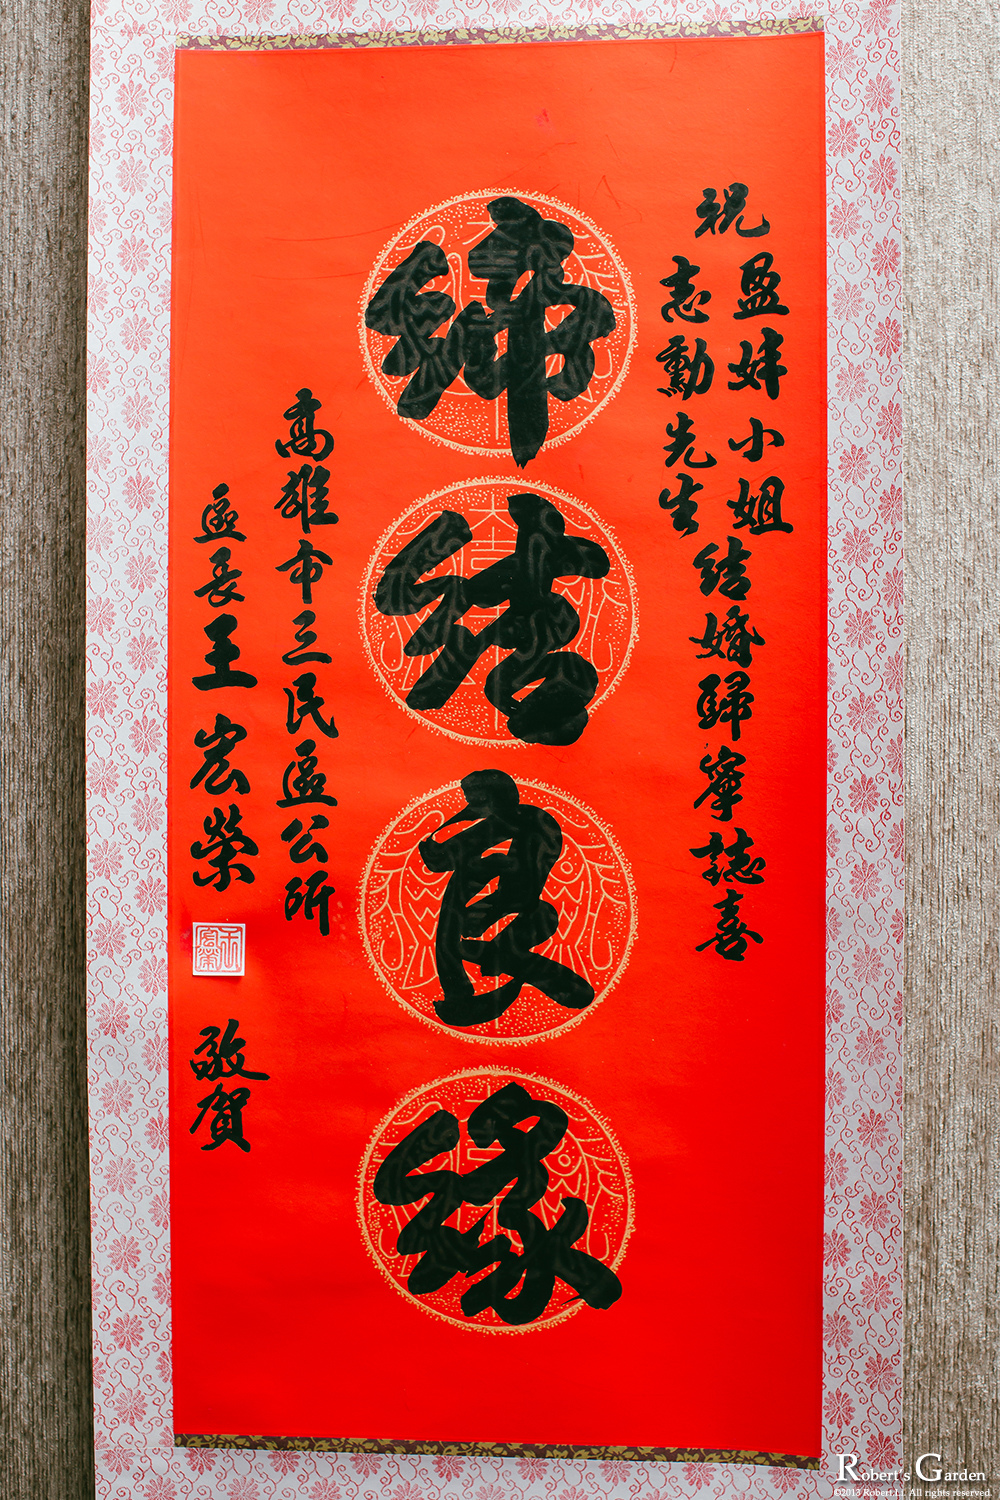 祝
盈妦小姐
志勳先生
結婚歸寧誌喜
締結良緣
高雄市三民區公所
區長王宏榮
王宏榮
敬賀
Robert's Garden
©2013 Robert.Li All rights reserved.